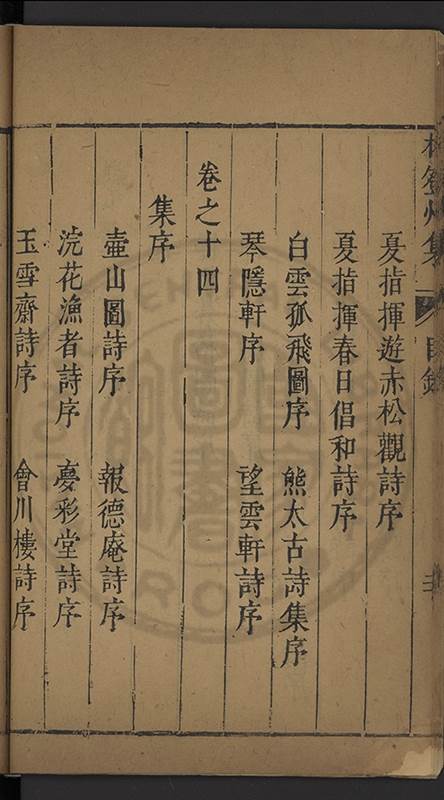 林登州集 目錄
夏指揮遊赤松觀詩序
夏指揮春日倡和詩序
白雲孤飛圖序 熊太古詩集序
琴隱軒序 望雲軒詩序
卷之十四
集序
壺山圖詩序 報德庵詩序
浣花漁者詩序 夢彩堂詩序
玉雪齋詩序 會川樓詩序